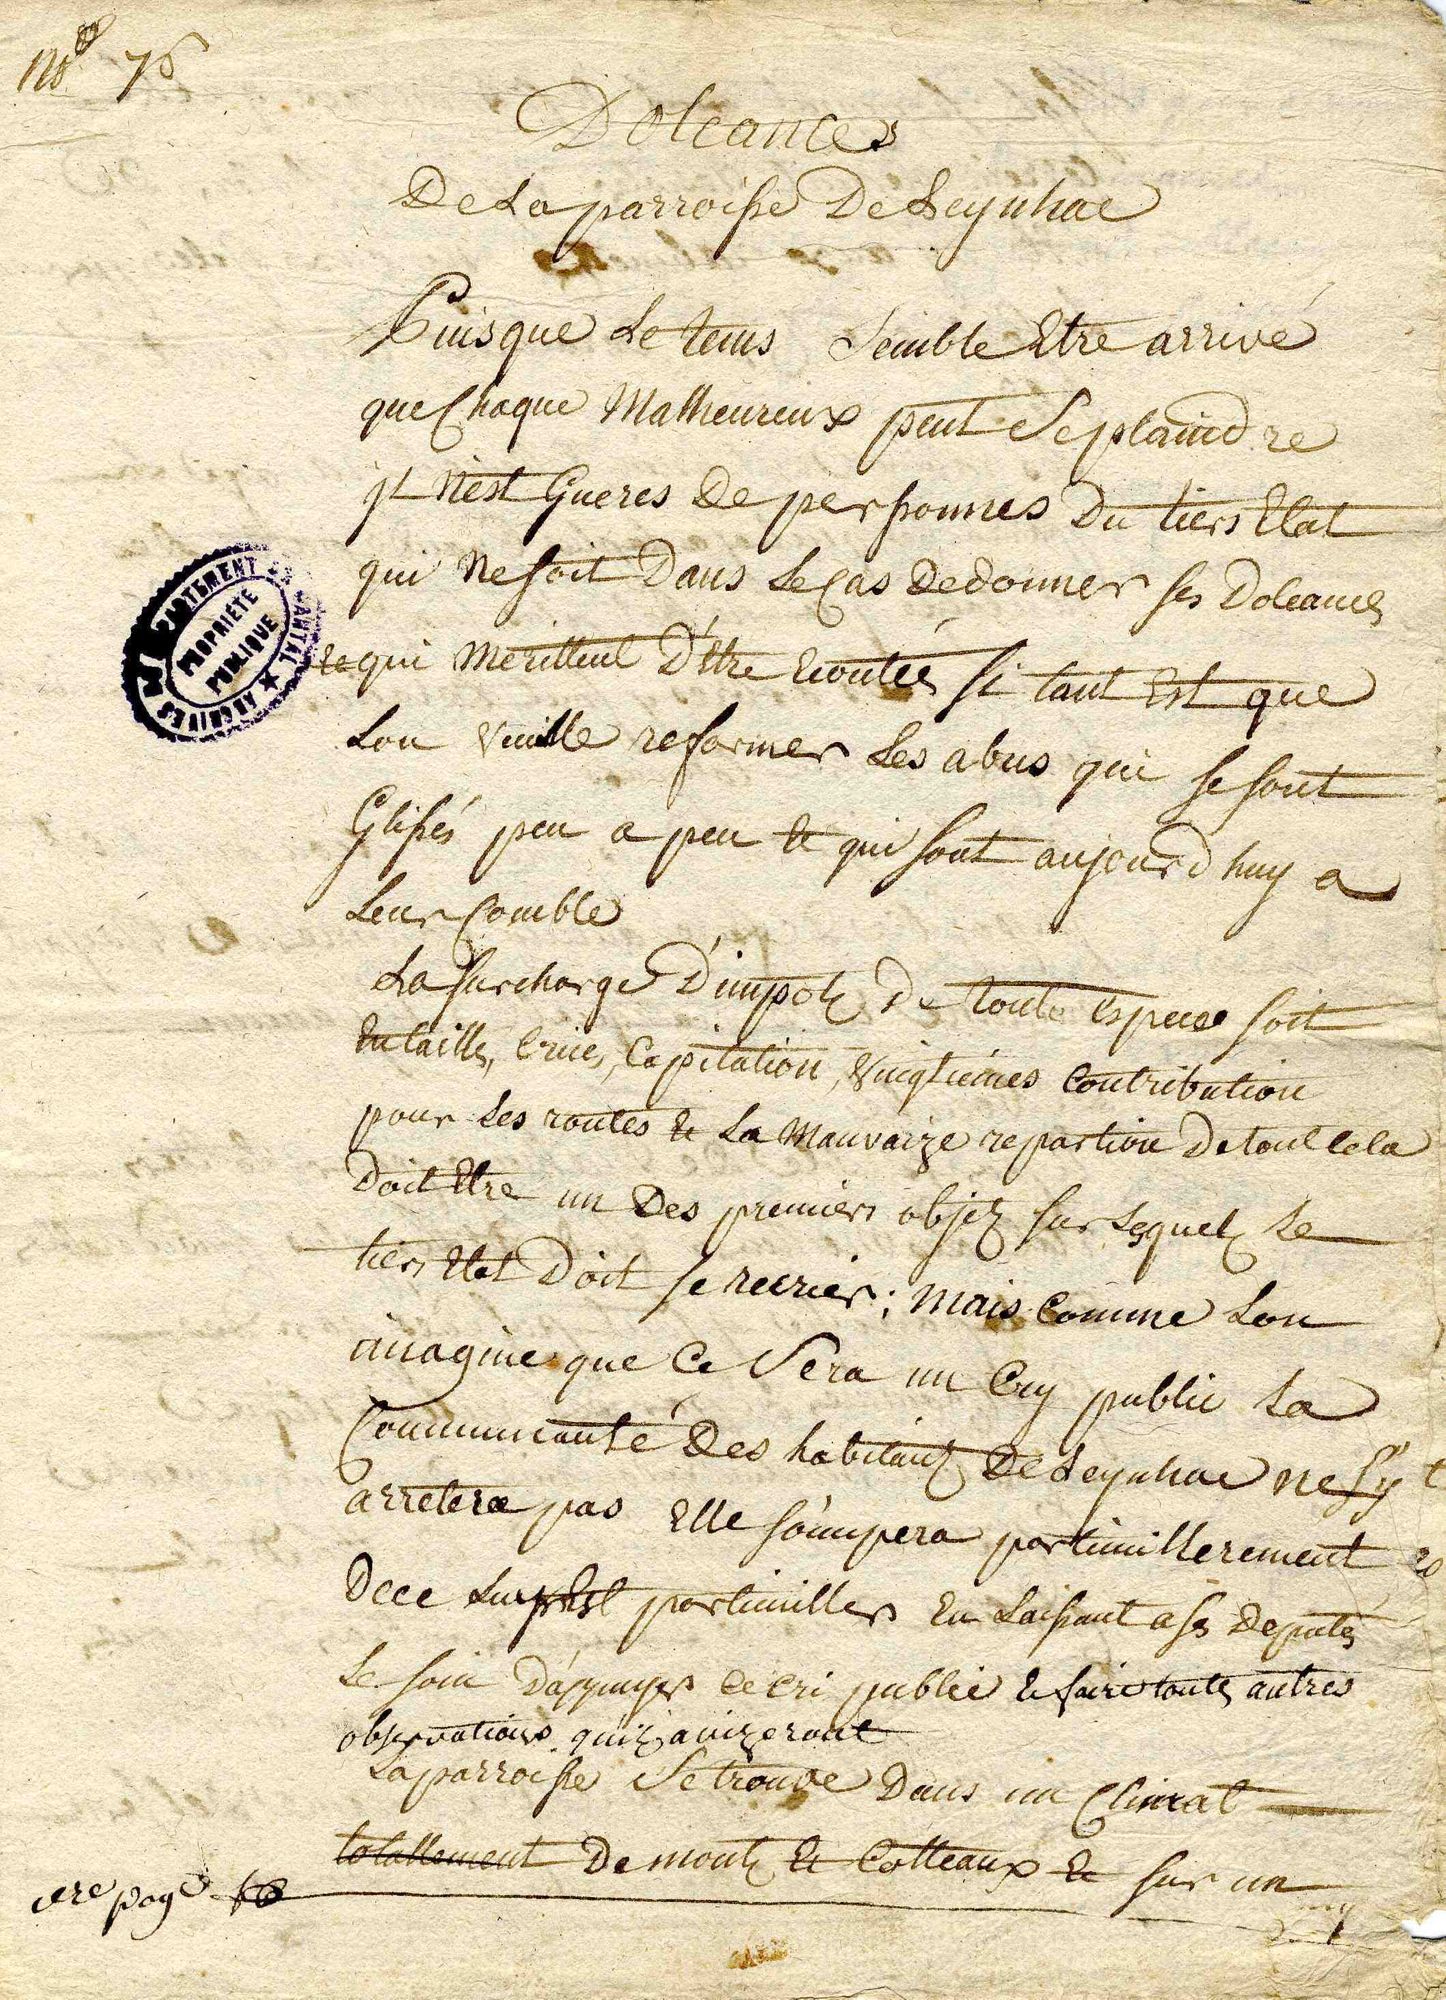 No 76
Doleances
De La parroisse De Leynhac
Puisque Le tems Semble Etre arrivé
que Chaque Malheureux peut Se plaindre
jl n'est Gueres De personnes Du tiers Etat
qui ne soit Dans Le Cas De donner ses Doleances
et qui meritteut D'étre Ecoutées si tant Est que
Lon Veuille reformer Les abus qui se sont
Glissés peu a peu et qui sont aujourd'huy a
Leur Comble
La surcharge D'impots De toute espece soit
En taille, Crue, Capitation, Vingtiémes Contribution
pour Les routes et La Mauvaize repartion De tout Cela
Doit Etre un Des premiers objets sur Lequels Le
tiers Etat Doit se recrier; Mais Comme Lon
imagine que Ce Sera un Cry public La
Communauté Des habitants De Leynhac ne s'y
arretera pas Elle s'ocupera particuillerement
De ce qui Est particuiller En Laissant a ses Deputés
Le soin D'appuyer Ce Cri public et faire toutes autres
observations quils avizeront
La parroisse Se trouve Dans un Climat
totallement De monts et Cotteaux et sur un
ere page
ARCHIVES DU DÉPARTEMENT DU CANTAL
PROPRIÉTÉ
PUBLIQUE